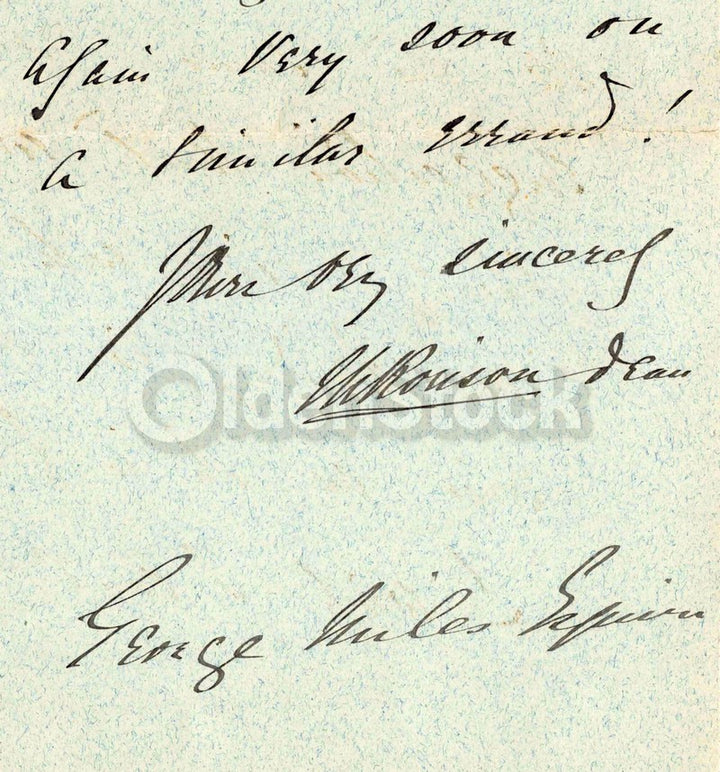 again very soon on
a similar errand!
Yours very sincerely
Dean
OldenStock
George Miles Esquire